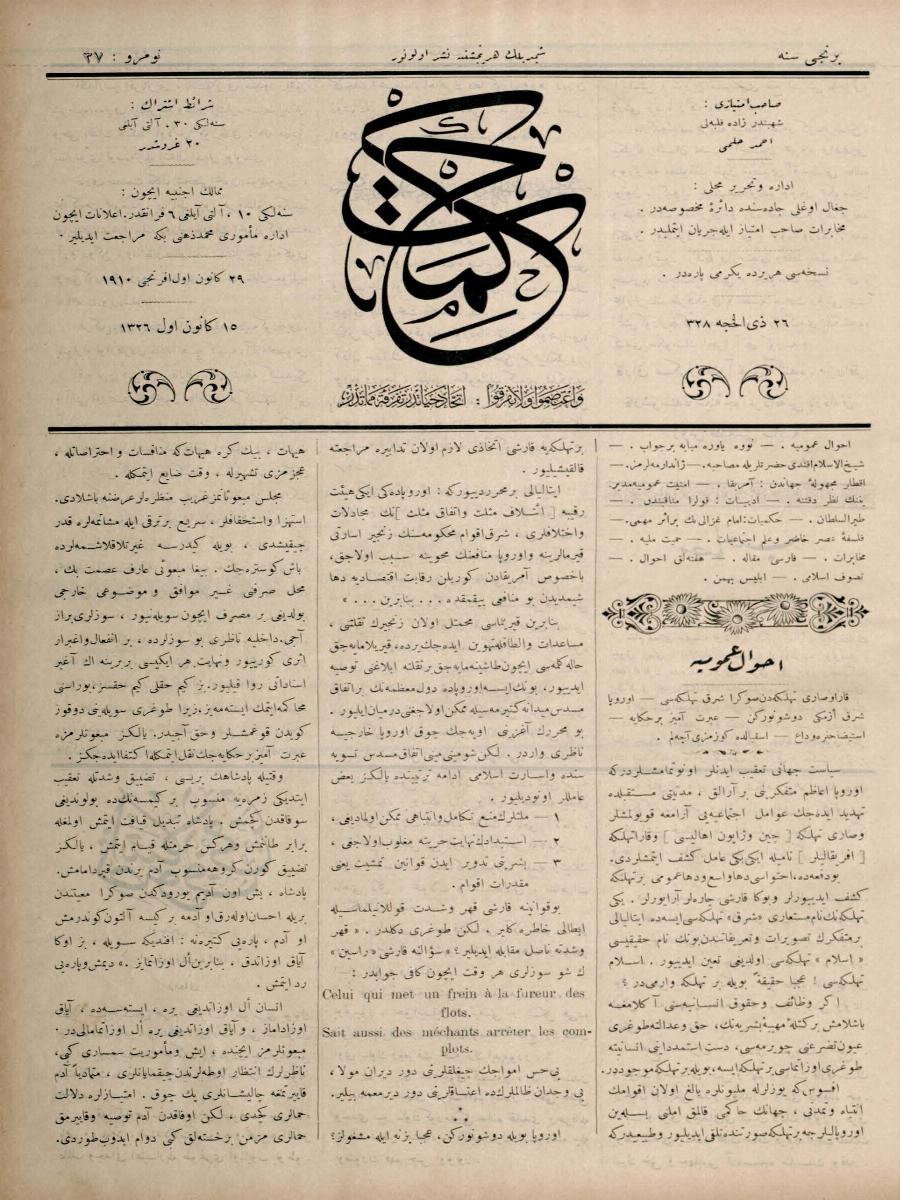 برنجی سنه
شمدیلك هر پنجشنبه نشر اولونور
نومرو : ٣٧
صاحب امتیازی :
شهبندر زاده فلبه‌لی
احمد حلمی
اداره وتحریر محلی :
جغال اوغلی جاده‌سنده دائرۀ مخصوصه‌در .
مخابرات صاحب امتیاز ایله جریان ایتملیدر .
نسخه‌سی هر یرده یکرمی پاره‌در .
٢٦ ذی الحجه ٣٢٨
حکمت
واعتصموا ولا تفرقوا : اتحاد حیاتدر تفرقه مماتدر
شرائط اشتراك :
سنه‌لکی ٣٠ . آلتی آیلغی
٢٠ غروشدر
ممالك اجنبیه ایچون :
سنه‌لکی ١٠ ، آلتی آیلغی ٦ فرانقدر. اعلانات ایچون
اداره مأموری محمد ذهنی بکه مراجعت ایدیلیر .
٢٩ کانون اول افرنجی ١٩١٠
١٥ کانون اول ١٣٢٦
احوال عمومیه . — نووه یاوره میایه برجواب . —
شیخ الاسلام افندی حضرتلریله مصاحبه. — ژاندارمه‌لرمز. —
اقطار مجهولۀ جهاندن : آمریقا . — امنیت عمومیه مدیر
یتنك نظر دقتنه . — ادبیات :
طیر السلطان . — حکمیات: امام غزالی‌نك براثر مهمی. —
فلسفۀ عصر حاضر وعلم اجتماعیات . — حمیت ملیه . —
مخابرات . — فارسی مقاله . — هفته‌لق احوال . —
تصوف اسلامی . — ابلیس بهمن .
احوال عمومیه
قارا وصاری تهلکه‌دن صوکرا شرق تهلکه‌سی — اوروپا
شرق آزمکی دوشونورکن — عبرت آمیز برحکایه —
سیاست جهانی تعقیب ایدنلر اونوتمامشلردرکه
اوروپا اعاظم متفکرینی بر آرالق ، مدنیتی مستقبلده
تهدید ایده‌جك عوامل اجتماعیه‌یی آرامغه قویولمشلر
وصاری تهلکه [ چین وژاپون اهالیسی ] وقارا تهلکه
[ افریقالیلر ] نامیله ایکی یکی عامل کشف ایتمشلردی.
بودفعه‌ده، احتواسی دها واسع ودها عمومی بر تهلکه
کشف ایدیورلر وبوکا قارشی چاره‌لر آرایورلر . یکی
تهلکه‌نك نام مستعاری «شرق» تهلکه‌سی ایسه‌ده ایتالیالی
برمتفکرك تصویرات وتعریفاتندن بونك نام حقیقیسی
« اسلام » تهلکه‌سی اولدیغی تعین ایدیور . اسلام
تهلکه‌سی ! عجبا حقیقةً بویله بر تهلکه وارمی‌در ؟
اکر وظائف وحقوق انسانیه‌سنی آکلامغه
باشلامش برکتلۀ مهمۀ بشریه‌نك، حق وعدالته طوغری
عیون تضرعنی چویرمه‌سی، دست استمدادنی انسانیته
طوغری اوزاتماسی بر تهلکه ایسه، بویله بر تهلکه موجوددر.
افسوس که یوزلرله ملیونلره بالغ اولان اقوامك
انتباه وتمدنی ، جهانك حاکمی قالمق املنی بسله‌ین
اوروپالیلرجه بر تهلکه صورتنده تلقی ایدیلیور وطبیعیدرکه
بر تهلکه‌یه قارشی اتخاذی لازم اولان تدابیره مراجعته
قالقیشیلیور .
ایتالیالی برمحرر دیورکه : اوروپاده‌کی ایکی هیئت
رقیبه [ ائتلاف مثلث واتفاق مثلث ] نك مجادلات
واختلافلری ، شرق اقوام محکومه‌سنك زنجیر اسارتی
قیرمالرینه واوروپا منافعنك محوینه سبب اولاجق ،
باخصوص آمریقادن کوریلن رقابت اقتصادیه دها
شیمدیدن بو منافعی ییقمقده . . . بنابرین . . . »
بنابرین قیریلماسی محتمل اولان زنجیرك ثقلتنی ،
مساعدات والطافله تهوین ایده‌جك یرده، قیریلامایه‌جق
حاله کلمه‌سی ایچون طاشینه‌مایه‌جق بر ثقلته ابلاغنی توصیه
ایدیور، بونك ایسه اوروپاده دول معظمه‌نك بر اتفاق
مسدس میدانه کتیرمه‌سیله ممکن اولاجغنی درمیان ایلیور.
بو محررك آغزینی اوپه‌جك چوق اوروپا خارجیه
ناظری واردر . لکن شو مینی مینی اتفاق مسدس تسویه
سنده واسارت اسلامی ادامه ترتیبنده یالکز بعض
عامللر اونودیلیور .
١ — ملتلرك منع تکامل وانتباهی ممکن اولمادیغی ،
٢ — استبدادك نهایت حریته مغلوب اولاجغی ،
٣ — بشریتی تدویر ایدن قوانین تمشیت یعنی
مقدرات اقوام .
بوقوانینه قارشی قهر وشدت قوللانیلماسیله
ایطالی خاطره کلیر ، لکن طوغری دکلدر . « قهر
وشدته ناصل مقابله ایدیلیر ؟ » سؤالنه قارشی « راسین »
ك شو سوزلری هر وقت ایچون کافی جوابدر :
Celui qui met un frein à la fureur des
flots.
Sait aussi des méchants arrêter les com-
plots.
بی‌حس امواجك چیغلقلرینی دور دیران مولا ،
بی وجدان ظالملرك‌ده اعتسافلرینی دور دیرمعمه بیلیر.
اوروپا بویله دوشونورکن، عجبا بز نه ایله مشغولز؟
هیهات ، بیك کره هیهات که منافسات و احتراصاتله ،
عجزمزی تشهیرله ، وقت ضایع ایتمکله .
مجلس مبعوثانمز غریب منظره‌لر عرضنه باشلادی.
استهزا واستخفافلر ، سریع بر ترقی ایله مشاتمه‌لره قدر
چیقیشدی ، بویله کیدرسه غیرتلاقلاشمه‌لرده
باش کوستره‌جك . بیغا مبعوثی عارف عصمت بك ،
محل صرفنی غیر موافق و موضوعی خارجی
بولدیغی بر مصرف ایچون سویله‌نیور ، سوزلری براز
آجی. داخلیه ناظری بو سوزلرده ، بر انفعال واغبرار
اثری کوریور ونهایت هر ایکیسی بربرینه اك آغیر
اسناداتی روا قیلیور. بز کیم حقلی کیم حقسز، بوراسنی
محاکمه ایتمك ایسته‌مه‌یز، زیرا طوغری سویله‌ینی دوقوز
کویدن قوغمشلر وحق آجیدر. یالکز مبعوثلرمزه
عبرت آمیز بر حکایه‌جك نقل ایتمکله اکتفا ایده‌جکز .
وقتیله پادشاهك بریسی ، تضییق وشدتله تعقیب
ایتدیکی زمره‌یه منسوب بر کیمسه‌نك‌ده بولوندیغی
سوقاقدن کچمش . پادشاه تبدیل قیافت ایتمش اولمغله
برابر طانمش وهرکس حرمتله قیام ایتمش ، یالکز
تضییق کورن کروهه منسوب آدم یرندن قیردامامش.
پادشاه ، بش اون آدیم یورودکدن صوکرا معیتندن
بریله احسان اوله‌رق او آدمه بر کیسه آلتون کوندرمش
او آدم ، پاره‌یی کتیرنه : افندیکه سویله ، بز اوکا
آیاق اوزاتدق ، بنابرین ال اوزاتمایز .» دیمش وپاره‌یی
رد ایتمش .
انسان ال اوزاتدیغی یره ، ایسته‌سه‌ده ، آیاق
اوزاداماز ، و آیاق اوزاتدیغی یره ال اوزاتمامالی‌در .
مبعوثلرمز ایچنده ، ایش ومأموریت سمساری کبی،
ناظرلرك انتظار اوطه‌لرندن چیقمایانلری ، متمادیاً آدم
قاییرتمغه چالیشانلری پك چوق . امتیازلره دلالت
حماللری کچدی ، لکن اوفاقدن آدم توصیه وقاییرمق
حماللری مزمن برخسته‌لق کبی دوام ایدوب طوردی.